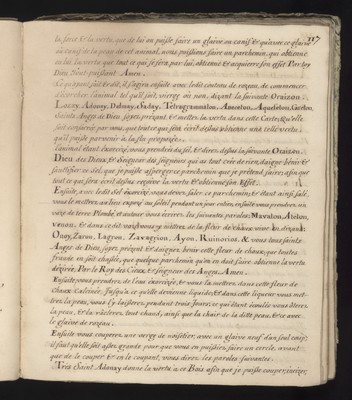 117
la force & la vertu, que de lui on puisse faire un glaive ou canif & qu'avec ce glaive
ou canif & la peau de cet animal, nous puissions faire un parchemin, qui obtienne
en lui la vertu que tout ce qui se fera par lui, obtienne & acquierre son effet. Par toy
Dieu Tout-puissant Amen.
& ayant fait & dit, il s'agira ensuite avec le dit couteau de roseau, de commencer
d'écorcher l'animal tel qu'il soit, vierge ou non, disant la suivante Oraison.
Adonay, Dalmay, Saday, Tetragrammaton, Anereton,
Saints Anges de Dieu soyez présent & mettez la vertu dans cette
soit consacré par vous, que tout ce qui sera écrit dessus obtienne une telle vertu,
qu'il puisse parvenir à la fin proposée.
L'animal étant écorché, vous prendrez du sel, & direz dessus la suivante Oraison.
Dieu des Dieux, & Seigneur des seigneurs qui as tout crée de rien, daigne bénir &
sanctifier ce sel, que je puisse arranger ce parchemin que je prétend faire, afin que
tout ce qui sera écrit dessus reçoive la vertu & obtienne son Effet.
Ensuite, avec le dit sel exorcisé, vous devez saler ce parchemin, & étant ainsi salé,
vous le mettrez au lieu exprez au soleil pendant un jour entier, ensuite vous prendrez un
vaze de terre Plombé, & autour vous écrirez les suivantes paroles:
& dans ce dit vaze vous y mettrez de la fleur de chaux vive
Onoy, Zaron, Zavagrion, Ayon, & vous tous saints
Anges de Dieu, soyez présent & daignez bénir cette fleur de chaux, que toutes
fraude en soit chassée, que quelque parchemin qu'on en doit faire obtienne la vertu
désirée, Par le Roy des Cieux, & Seigneur des Anges. Amen.
Ensuite vous prendrez de l'eau exorcisée, & vous la mettrez dans cette fleur de
chaux calcinée, jusqu'à ce qu'elle devienne liquide, & dans cette liqueur vous met-
trez la peau, vous l'y laisserez, pendant trois Jours, ce qui étant écoulé vous ôterez
la peau, & la râclerez tout chaud, ainsi que la chair de la ditte peau, & ce avec
le glaive de roseau.
Ensuite vous couperez une verge de noisetier, avec un glaive neuf d'un seul coup;
il faut qu'elle soit assez grande pour que vous en puissiez faire un cercle, avant
que de le couper & en le coupant, vous direz les paroles suivantes.
Tres Saint Adonay donne la vertu a ce Bois afin que je puisse couper, inciser,